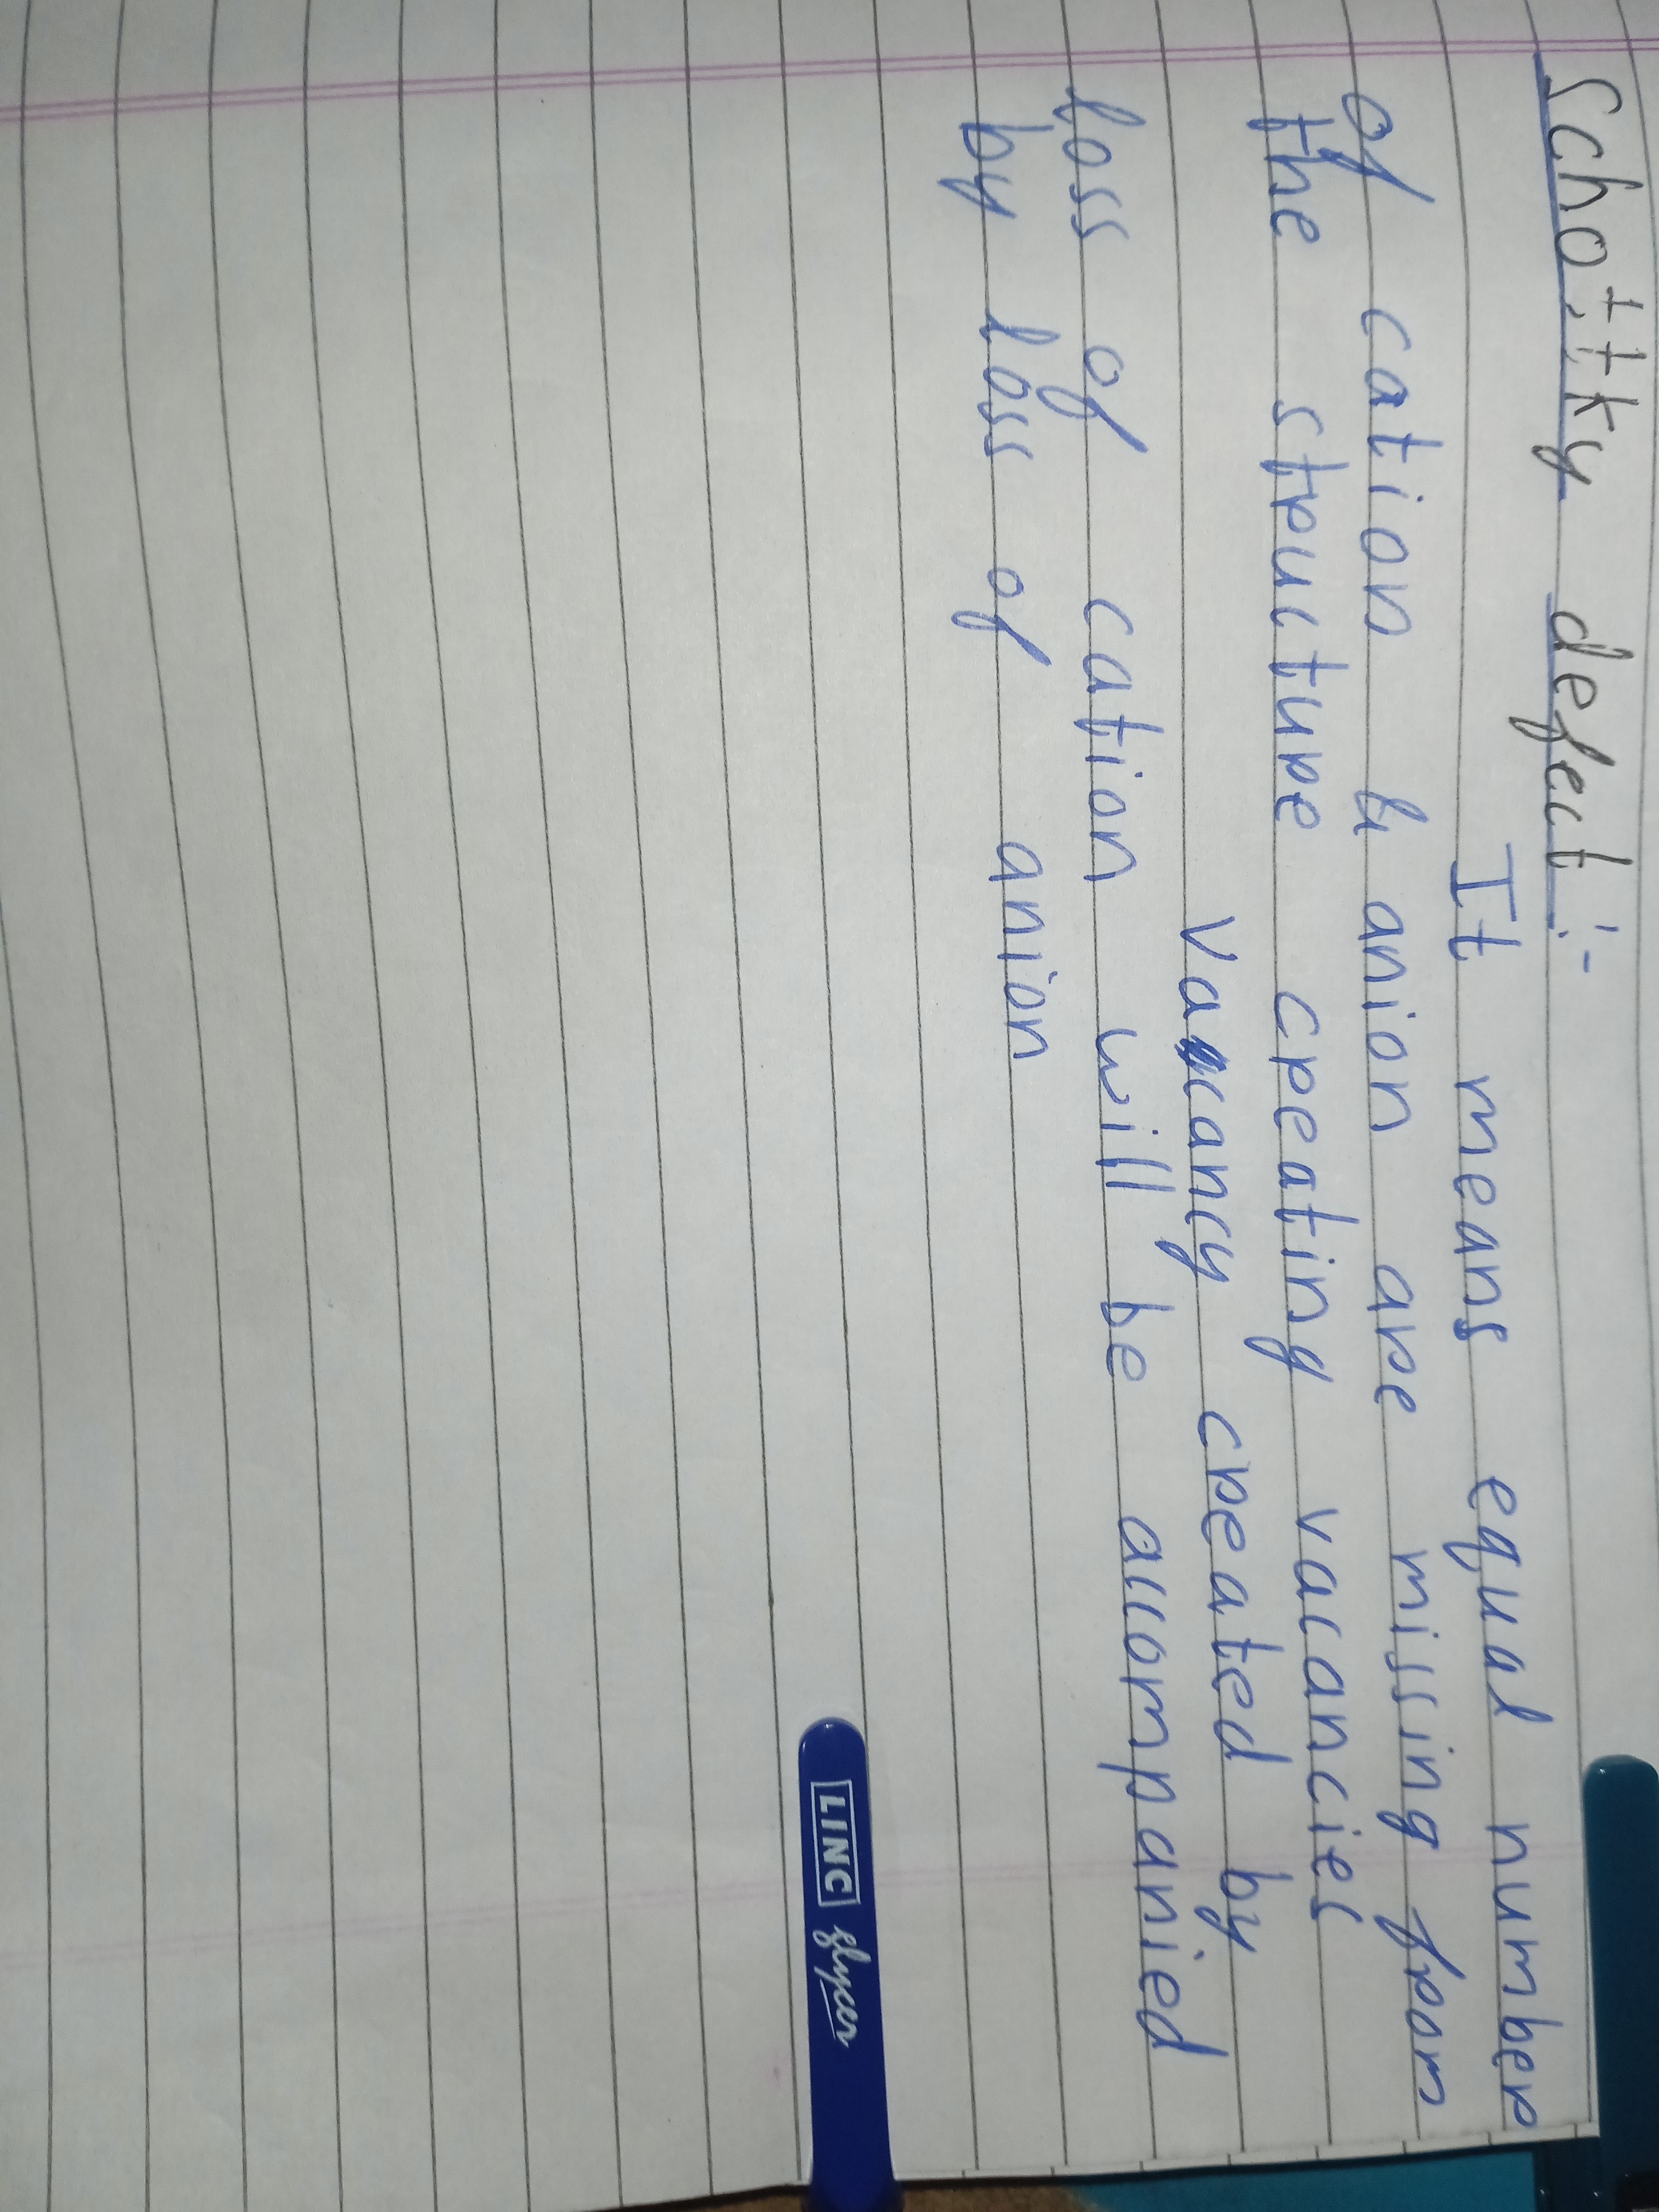 Schottky defect :-
It means equal number
of cation & anion are missing from
the structure creating vacancies
Vacancy created by
loss of cation will be accompanied
by loss of anion
LINC glycer